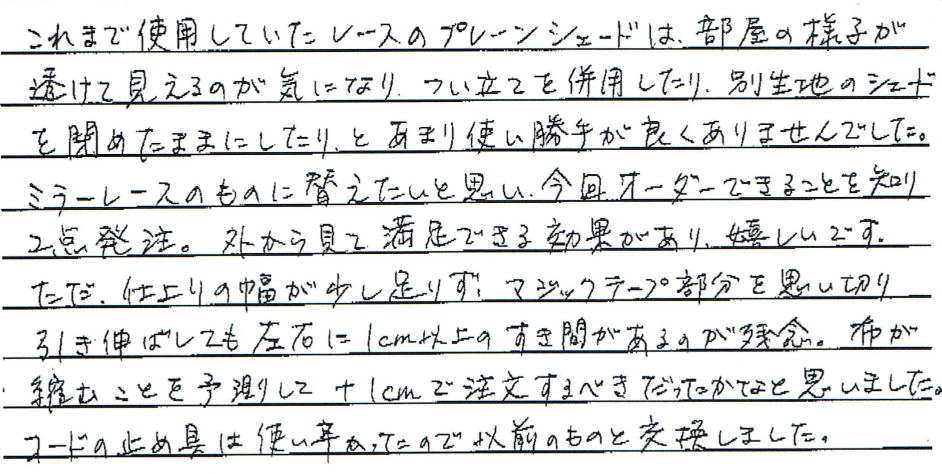 これまで使用していたレースのプレーンシェードは、部屋の様子が
透けて見えるのが気になり、つい立てを併用したり、別生地のシェード
を閉めたままにしたり、と あまり使い勝手が良くありませんでした。
ミラーレースのものに替えたいと思い、今回オーダーできることを知り
2点発注。外から見て満足できる効果があり、嬉しいです。
ただ、仕上りの幅が少し足りず、マジックテープ部分を思い切り
引き伸ばしても左右に1cm以上のすき間があるのが残念。布が
縮むことを予測して+1cmで注文するべきだったかなと思いました。
コードの止め具は使い辛かったので以前のものと交換しました。